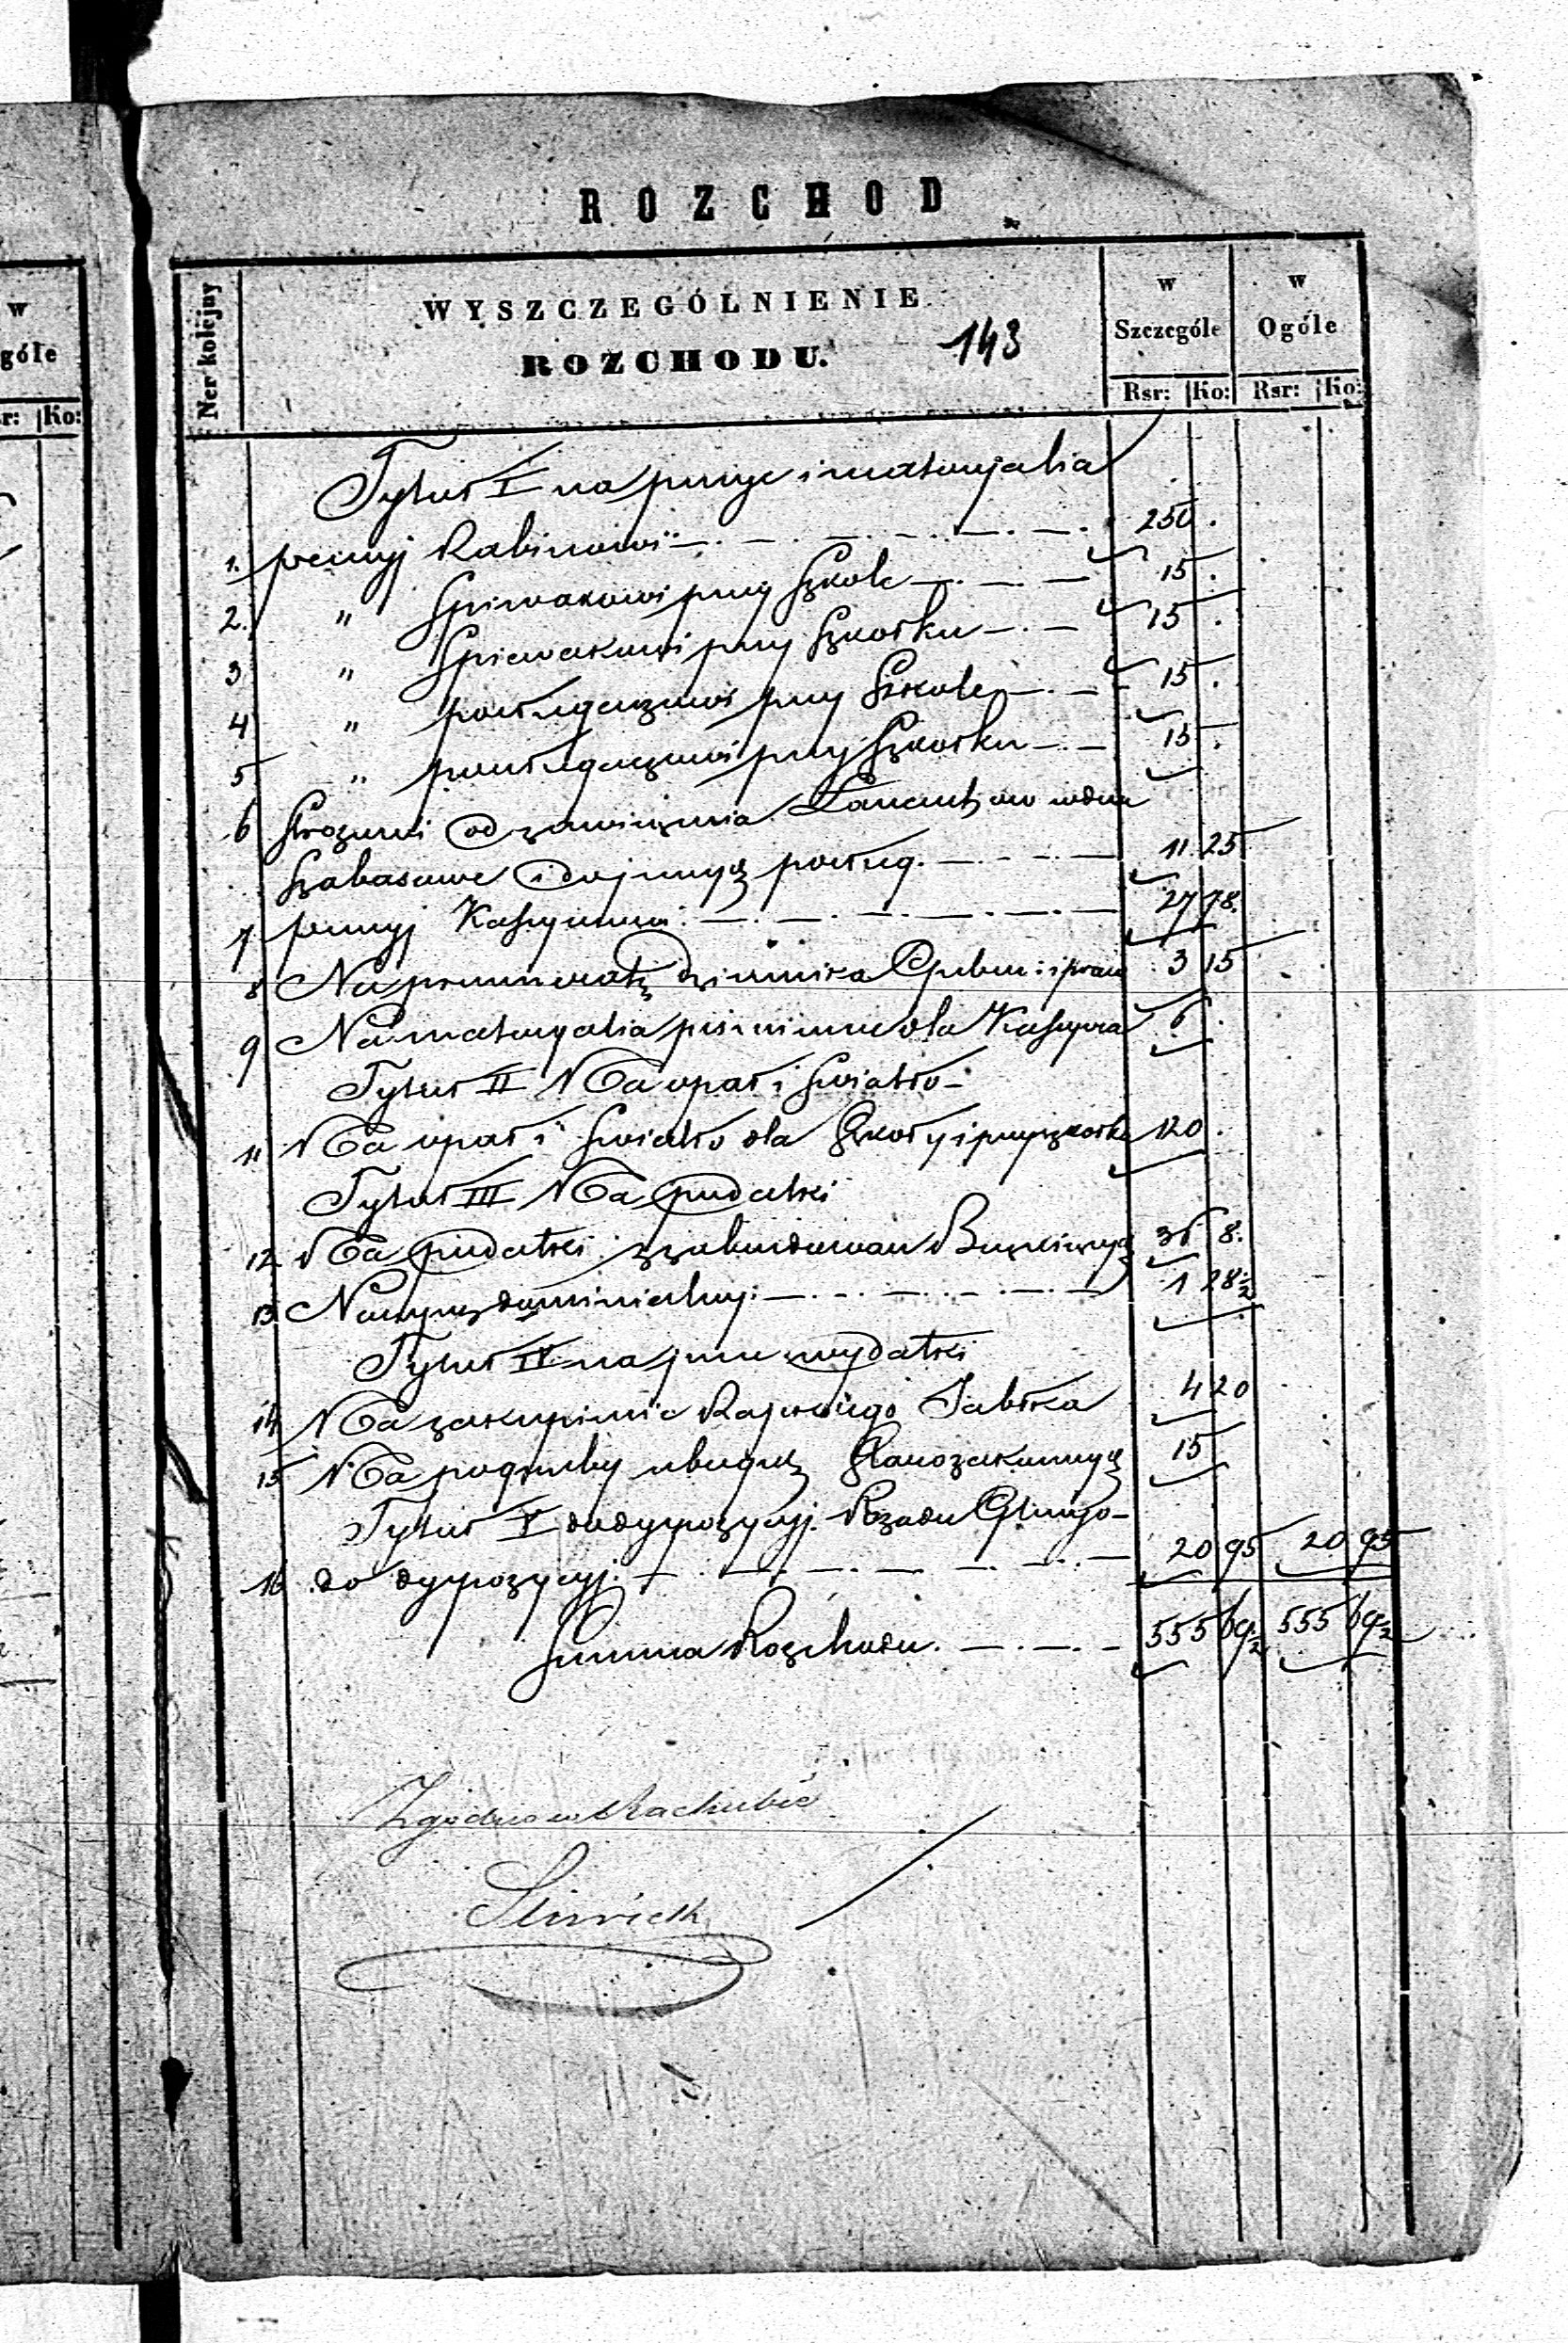 w
góle
r: Ko:
ROZCHOD
Ner kolejny
WYSZCZEGÓLNIENIE
ROZCHODU.
143
w Szczególe
w Ogóle
Rsr: Ko: Rsr: Ko:
Tytuł I na pensye i materyalia
1. pensyj Rabinowi 250 .
2. " Spiewakowi przy Szkole 15 .
3 " Spiewakowi przy Szkołku 15 .
4 " posługaczowi przy Szkole 15 .
5 " posługaczowi przy Szkołku 15 .
6 Strozowi od
Szabasowe i posług. 11 25
7 pensyj Kassyerowi 27 78.
8 Na prenumeratę dziennika Guber: i praw 3 15
9 Na materyalia piśmienne dla Kassyera 6 .
Tytuł II Na opał i Swiatło
11 Na opał i Swiatło dla Szkoły i przyszkołku 120 .
Tytuł III Na podatki
12 Na podatki z zabudowan Buzniczych 36 8.
13 Na czynsz dominialny 1 28½
Tytuł IV na jnne wydatki
14 Na zakupienie Rajskiego Jabłka 4 20
15 Na pogrzeby ubogich Starozakonnych 15
Tytuł V do dyspozycyj Rządu Gbnego
16 do dyspozycyj 20 95 20 95
Summa Rozchodu. 555 69½ 555 69½
Zgodno w Rachubie